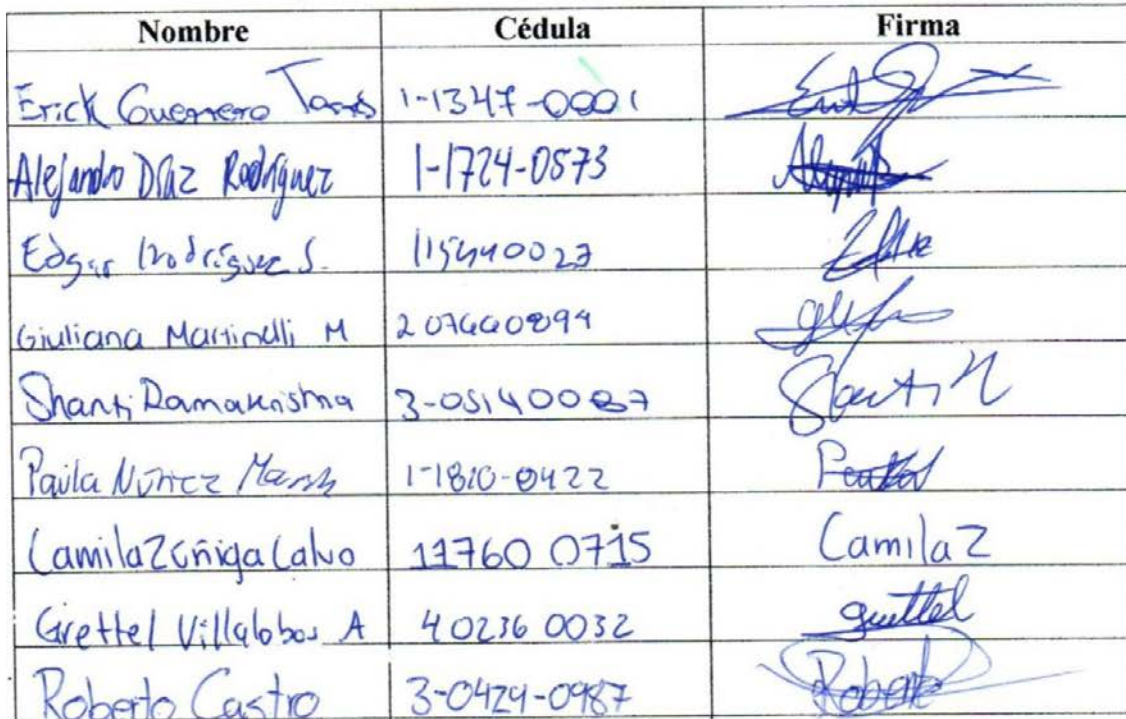 Nombre Cédula Firma
Erick Guerrero Torres 1-1347-0001
Alejandro Díaz Rodríguez 1-1724-0573
Edgar Rodríguez S. 115440027
Giuliana Martinelli M
Shanti Ramakrishna Shanti R
Paula Núñez Marsh 1-1810-0422
Camila Zúñiga Calvo 11760 0715 Camila Z
Grettel Villalobos A 40236 0032 grettel
Roberto Castro 3-0429-0987 Roberto